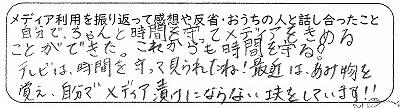 メディア利用を振り返って感想や反省・おうちの人と話し合ったこと
自分で、ちゃんと時間を守ってメディアをきめる
ことができた。これからも時間を守る!
テレビは、時間を守って見られたね!最近は、あみ物を
覚え、自分でメディア漬けにならない工夫をしています!!